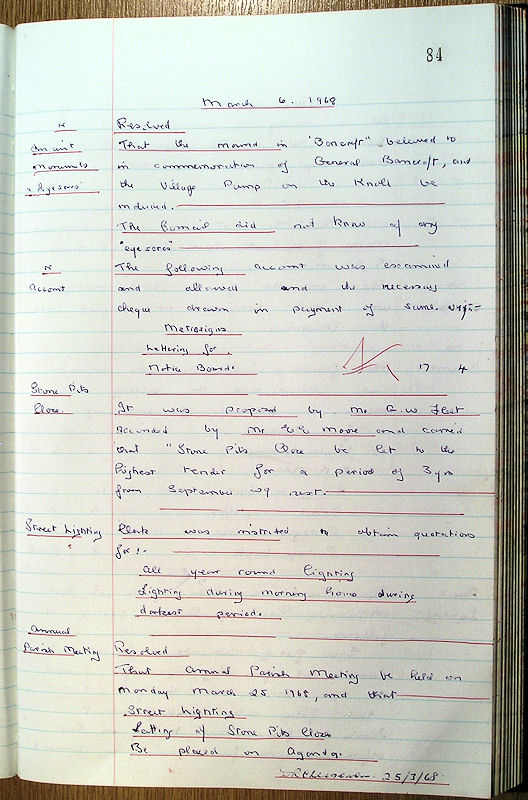 84
March 6. 1968
Resolved
Ancient
Monuments
"Eyesores"
That the mound in "Bancroft" believed to
in commemoration of General Bancroft, and
the Village Pump on the Knoll be
included.
The Council did not know of any
"eyesores"
Account
The following account was examined
and allowed and the necessary
cheque drawn in payment of same. viz:=
Metrosigns
Lettering for
Notice Boards
17 4
Stone Pits
Close.
It was proposed by Mr G. W Fleet
Seconded by Mr moore and carried
that "Stone Pits Close be let to the
highest tender for a period of 3 yrs
from September 29 next.
Street Lighting
Clerk was instructed to obtain quotations
for:-
All year round lighting
Lighting during morning hours during
darkest period.
Annual
Parish Meeting
Resolved
That Annual Parish Meeting be held on
Monday March 25 1968, and that
Street Lighting
Letting of Stone Pits Close
Be placed on Agenda.
25/3/68